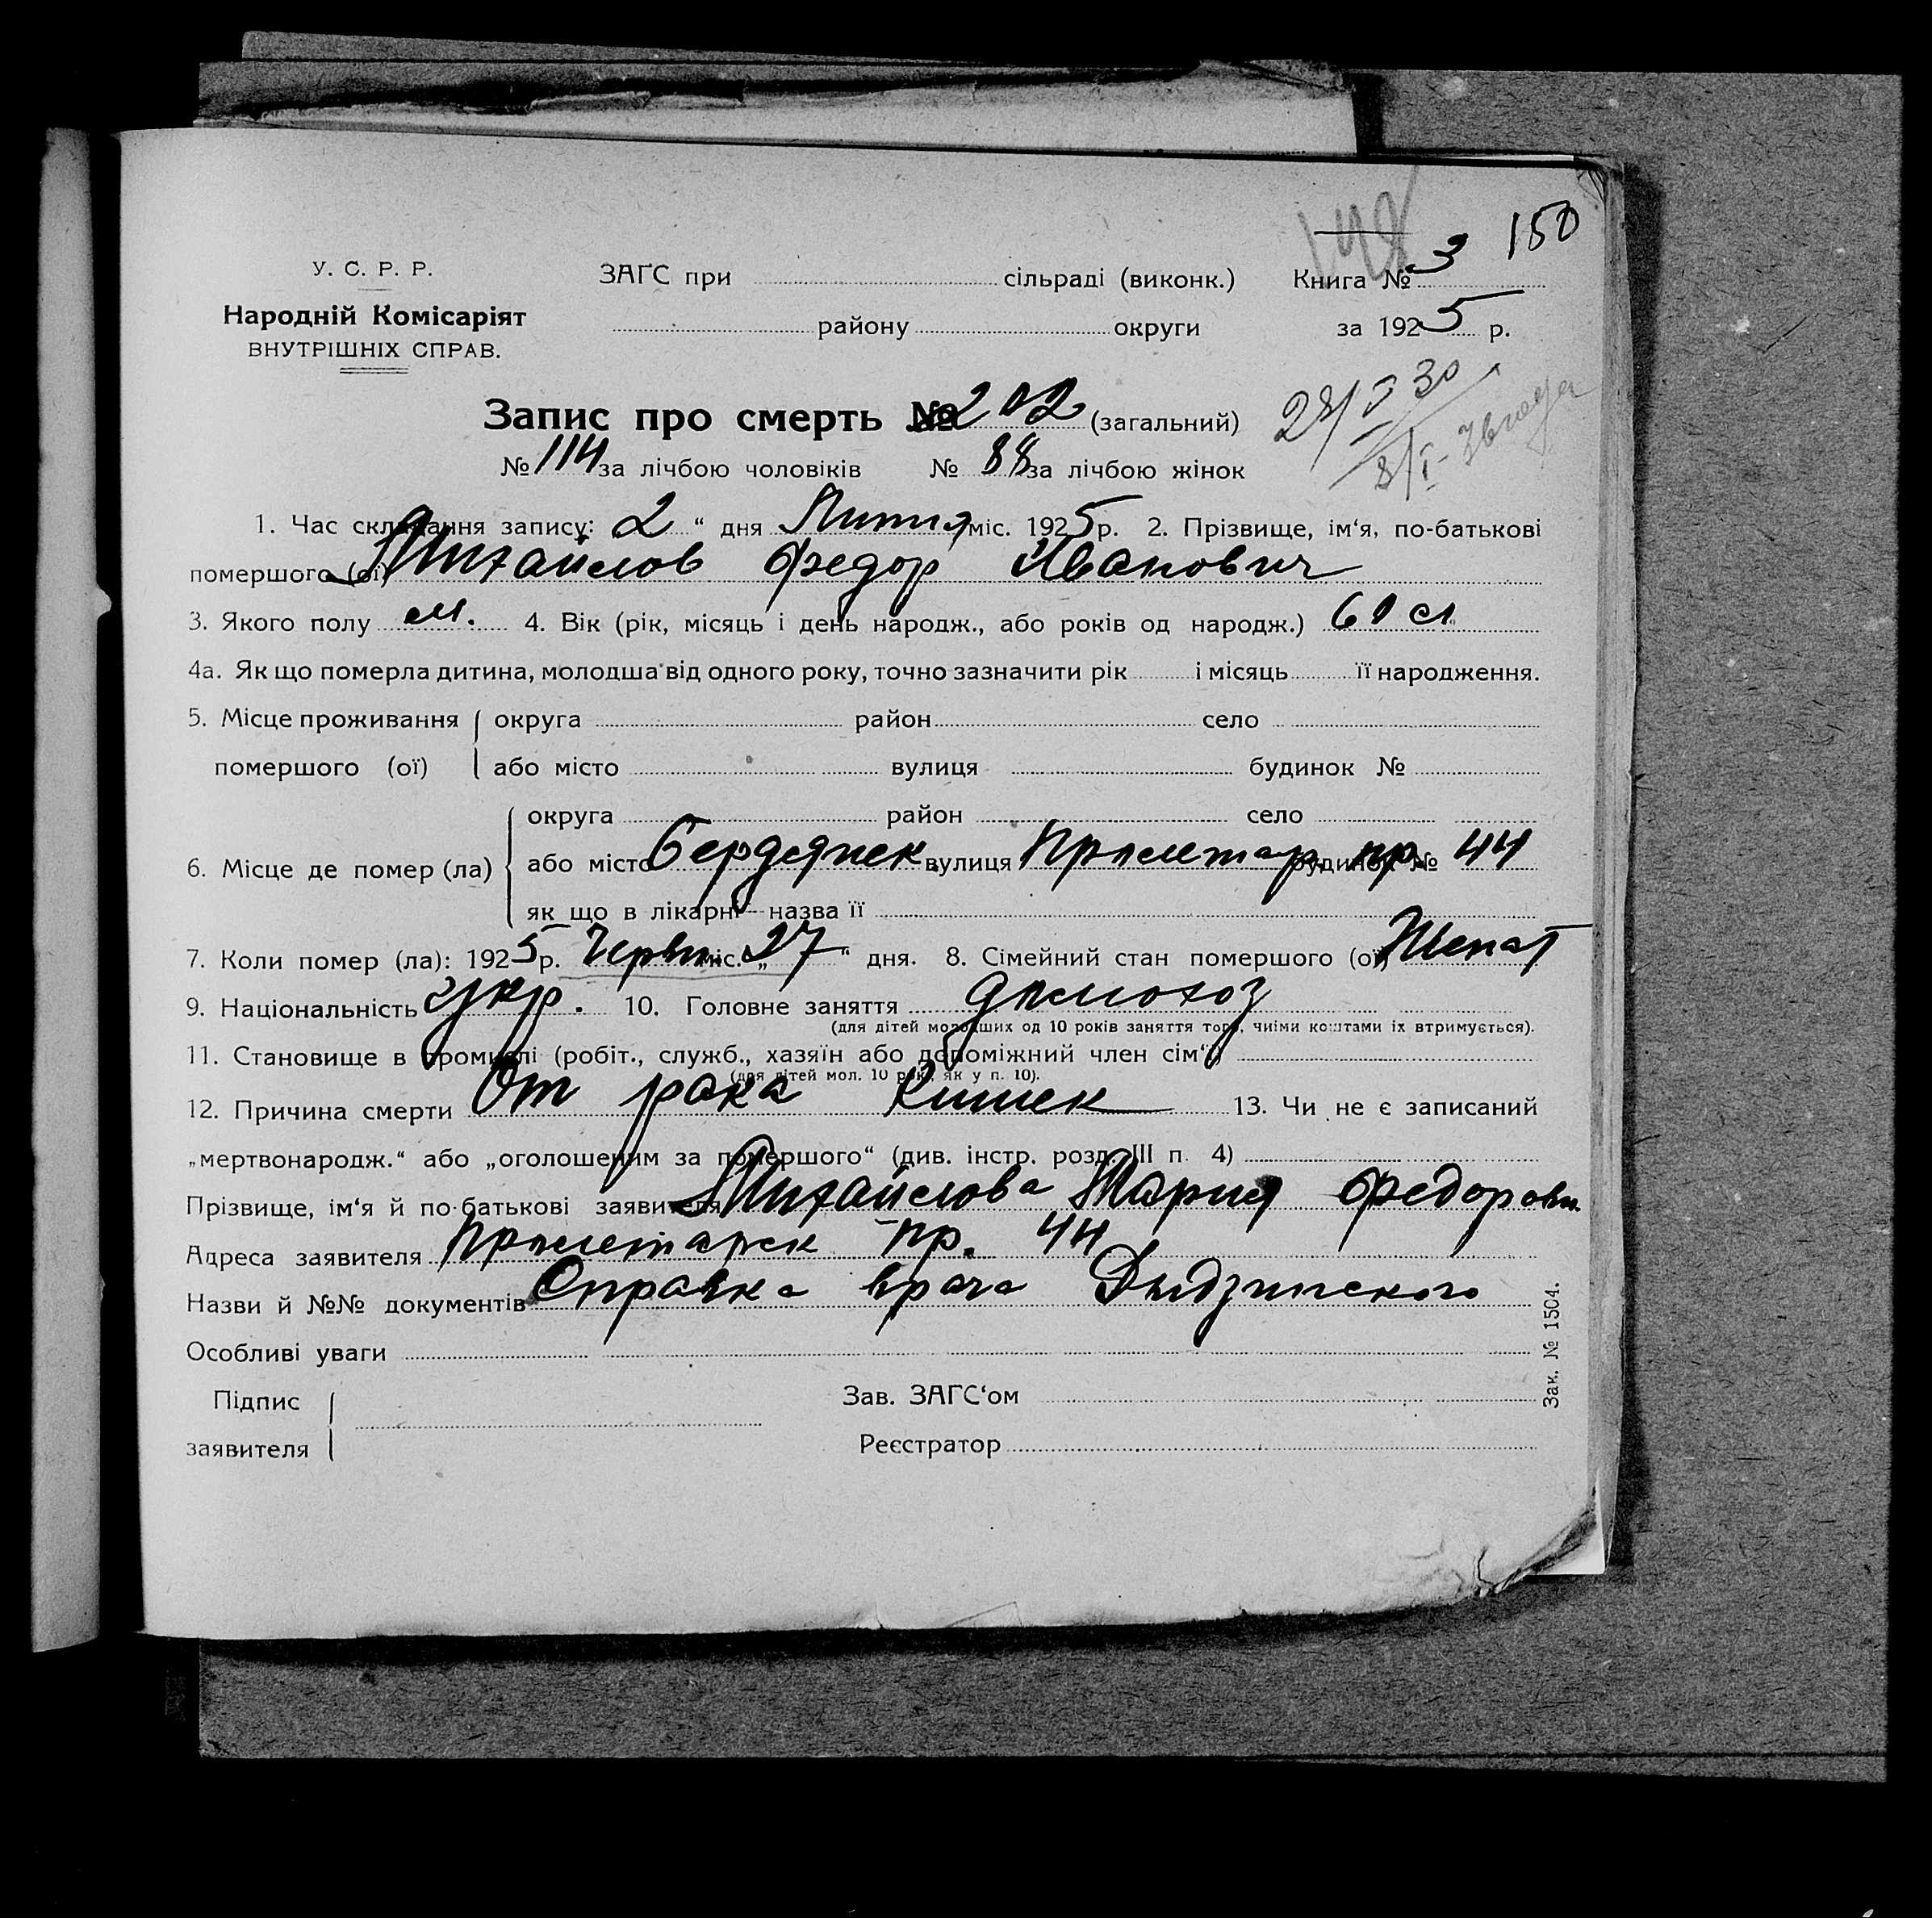 148
150
У. С. Р. Р.
ЗАГС при сільраді (виконк.) Книга № 3
Народній Комісаріят
району округи за 1925 р.
ВНУТРІШНІХ СПРАВ.
Запис про смерть № 202 (загальний)
№ 114 за лічбою чоловіків № 88 за лічбою жінок
1. Час складання запису: 2 “ дня Липня міс. 1925 р. 2. Прізвище, ім‘я, по-батькові
помершого (ої) Михайлов Федор Иванович
3. Якого полу м. 4. Вік (рік, місяць і день народж., або років од народж.) 61
4а. Як що померла дитина, молодша від одного року, точно зазначити рік і місяць її народження.
5. Місце проживання округа район село
помершого (ої) або місто вулиця будинок №
округа район село
6. Місце де помер (ла) або місто вулиця Пролетар пр. будинок № 44
як що в лікарні – назва її
7. Коли помер (ла): 1925 р. Червн. міс. „ 27 “ дня. 8. Сімейний стан помершого (ої) Женат
9. Національність укр. 10. Головне заняття домохоз
(для дітей молодших од 10 років заняття того, чиїми коштами їх втримується).
11. Становище в промислі (робіт., служб., хазяїн або допоміжний член сім‘ї)
(для дітей мол. 10 рок., як у п. 10).
12. Причина смерти От рака Кишек 13. Чи не є записаний
„мертвонародж.“ або „оголошеним за помершого“ (див. інстр. розд. III п 4)
Прізвище, ім‘я й по-батькові заявителя Михайлова Мария Федоровн.
Адреса заявителя Пролетарск пр. 44
Назви й №№ документів Справка врача Дыдзинского
Особливі уваги
Підпис Зав. ЗАГС‘ом
заявителя Реєстратор
Зак. № 1504.